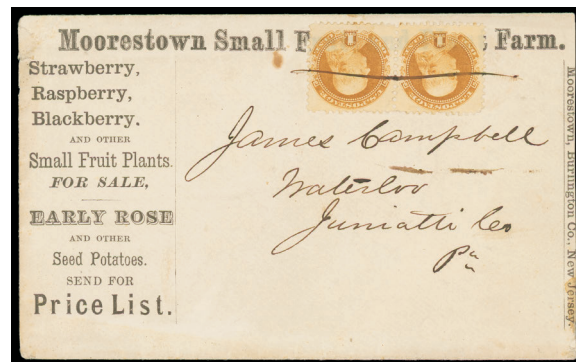 Moorestown Small F t Farm.
Strawberry,
Raspberry,
Blackberry.
AND OTHER
Small Fruit Plants.
FOR SALE,
EARLY ROSE
AND OTHER
Seed Potatoes.
SEND FOR
Price List.
James Campbell
Waterloo
Juniatti Co
Pa
Moorestown, Burlington Co., New Jersey.